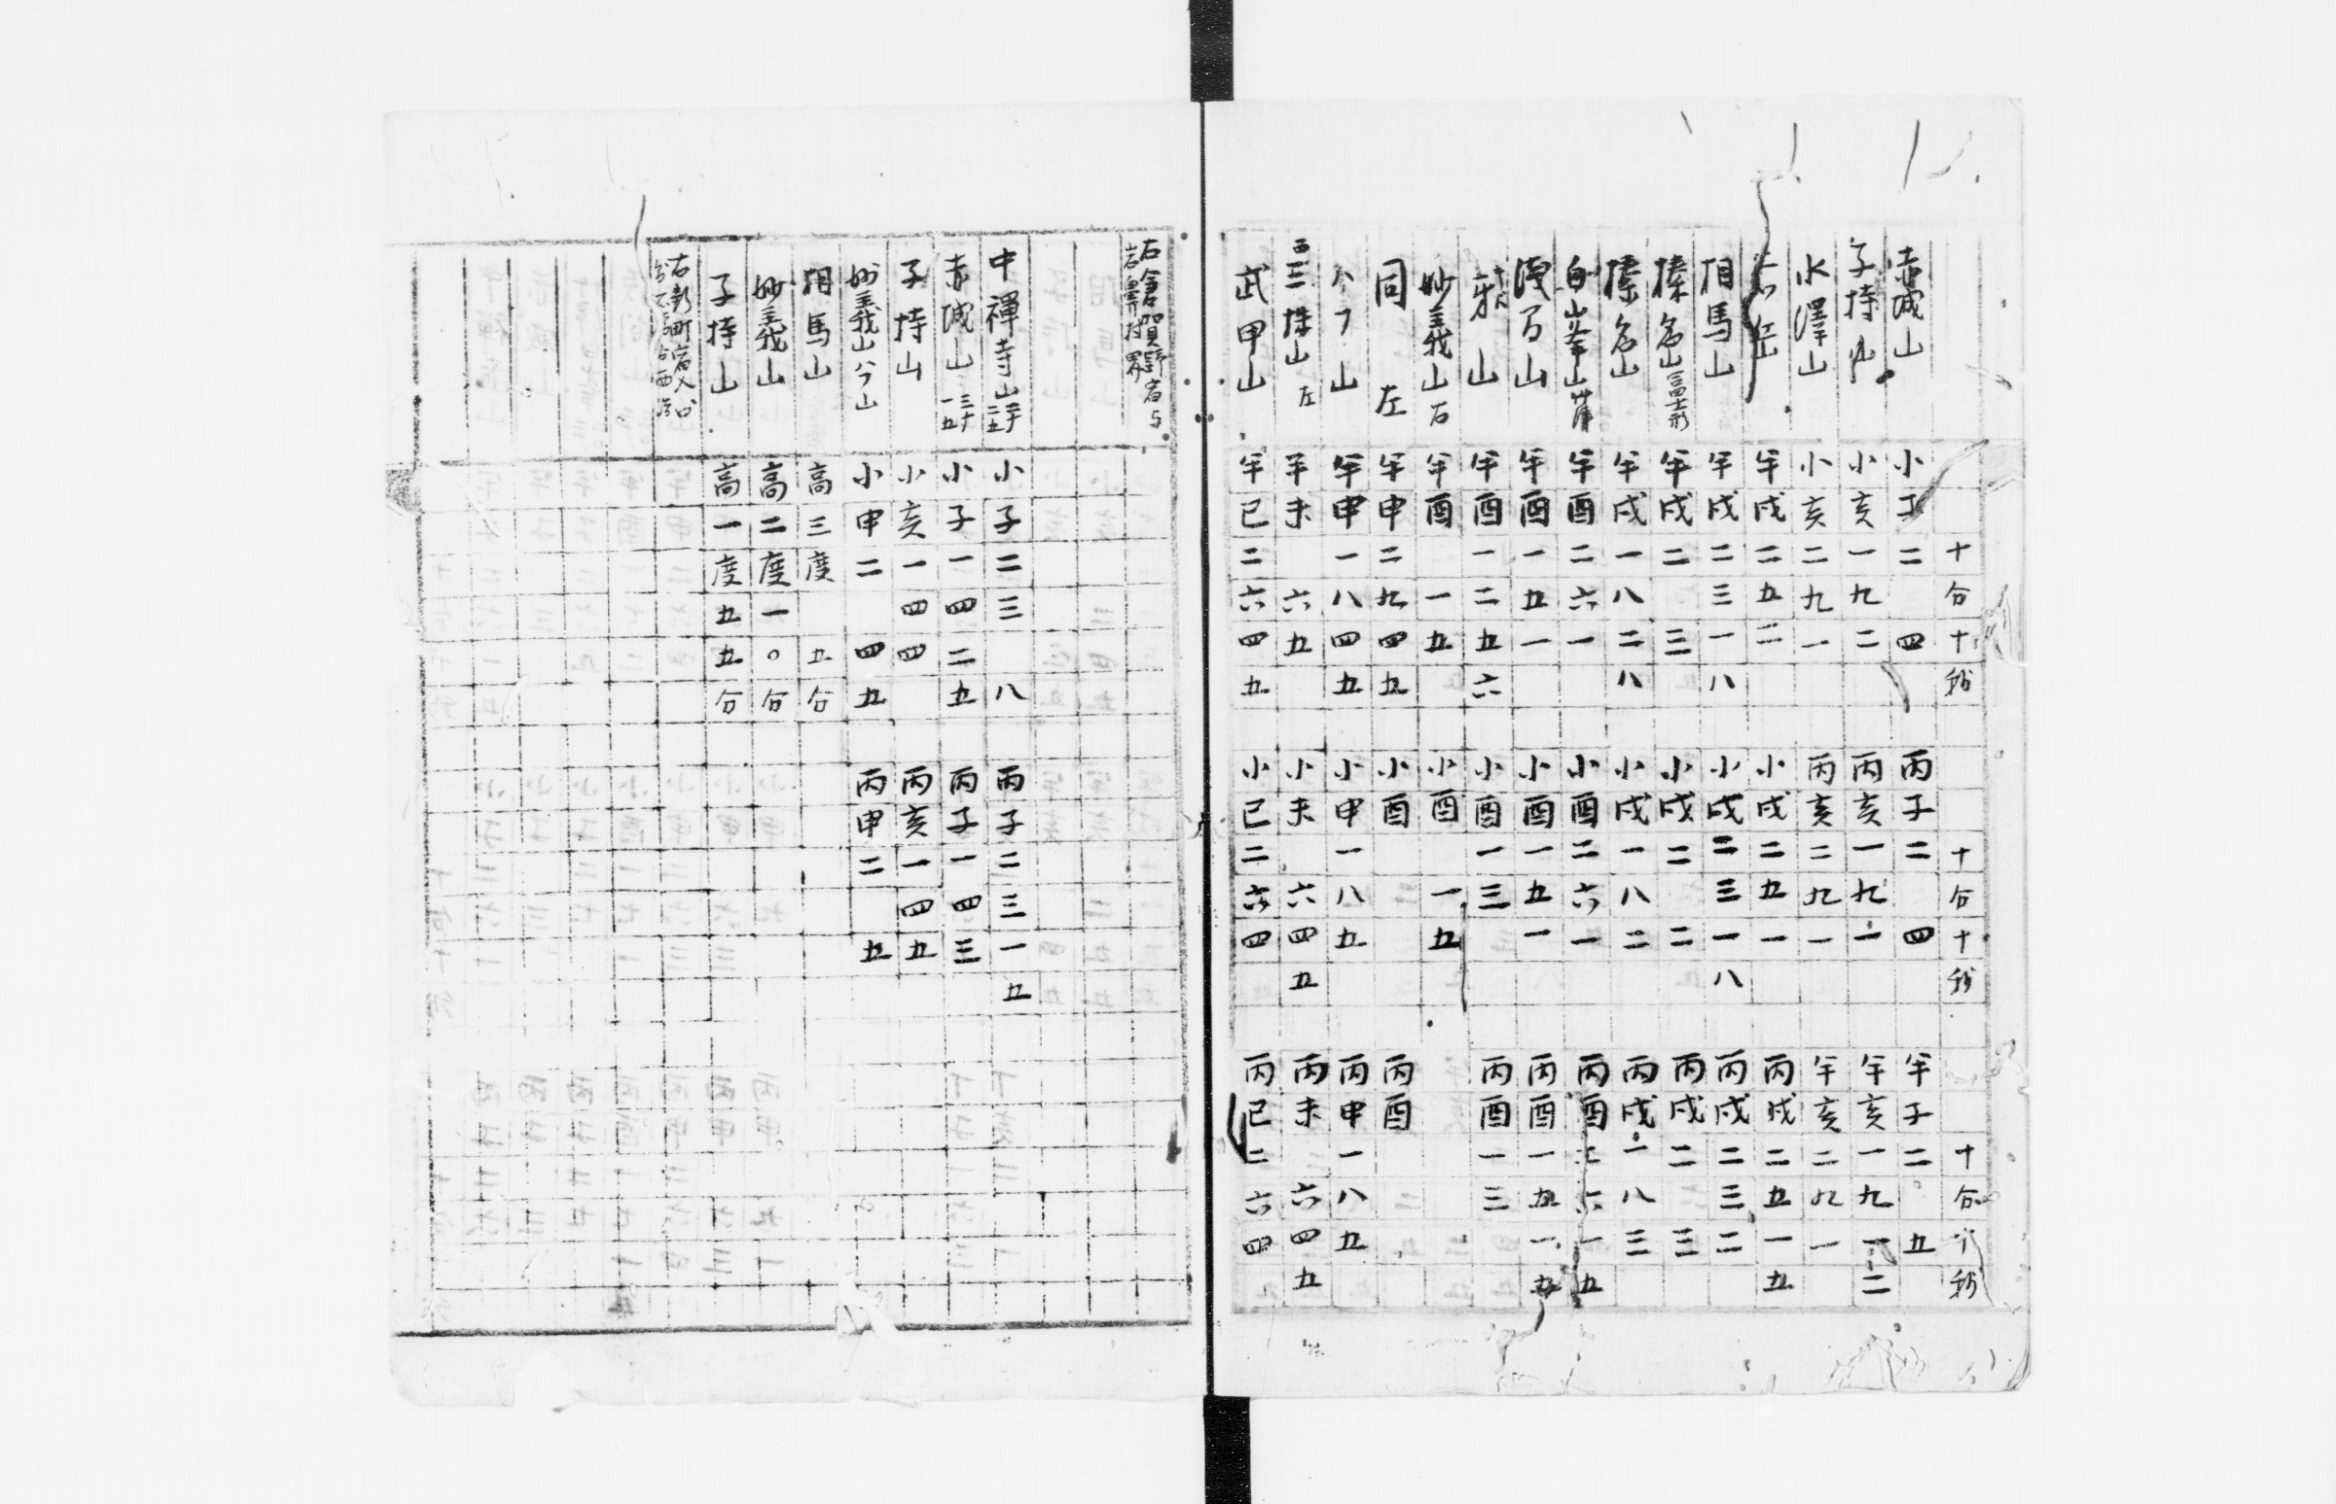 十分十秒 十分十秒 十分十秒
赤城山 小子二四 丙子二四 午子二五
子持山 小亥一九二 丙亥一九一 午亥一九一二
水澤山 小亥二九一 丙亥二九一 午亥二九一
岳 午戌二五二 小戌二五一 丙戌二五一五
相馬山 午戌二三一八 小戌二三一八 丙戌二三二
榛名山富士形 午戌二三 小戌二二 丙戌二三
榛名山 午戌一八二八 小戌一八二 丙戌一八三
白山峯山 午酉二六一 小酉二六一 丙酉二六一五
浅间山 午酉一五一 小酉一五一 丙酉一五一五
山 午酉一二五六 小酉一三 丙酉一三
妙義山石 午酉一五 小酉一五
同左 午申二九四五 小酉 丙酉
山 午申一八四五 小申一八五 丙申一八五
山左 午未六五 小未六四五 丙未六四五
武甲山 午巳二六四五 小巳二六四 丙巳二六四
右倉賀野宿与
岩鼻村界
中禅寺山 小子二三八 丙子二三一五
赤城山 小子一四二五 丙子一四三
子持山 小亥一四四 丙亥一四五
妙義山 小申二四五 丙申二五
相馬山 高三度五分
妙義山 高二度一〇分
子持山 高一度五五分
右新町宿入口